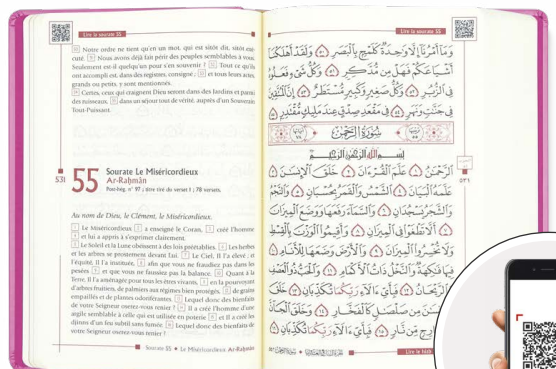 Lire la sourate 55
50 Notre ordre ne tient qu'en un mot, qui est sitôt dit, sitôt exé-
cuté. 51 Nous avons déjà fait périr des peuples semblables à vous.
Seulement est-il quelqu'un pour s'en souvenir ? 52 Tout ce qu'ils
ont accompli est, dans des registres, consigné ; 53 et tous leurs actes,
grands ou petits, y sont mentionnés.
54 Certes, ceux qui craignent Dieu seront dans des Jardins et parmi
des ruisseaux, 55 dans un séjour tout de vérité, auprès d'un Souverain
Tout-Puissant.
531
55
Sourate Le Miséricordieux
Ar-Raḥmān
Post-hég. n° 97 ; titre tiré du verset 1 ; 78 versets.
Au nom de Dieu, le Clément, le Miséricordieux.
1 Le Miséricordieux 2 a enseigné le Coran, 3 créé l'homme
4 et lui a appris à s'exprimer clairement.
5 Le Soleil et la Lune obéissent à des lois préétablies. 6 Les herbes
et les arbres se prosternent devant Lui. 7 Le Ciel, Il l'a élevé ; et
l'équité, Il l'a instituée, 8 afin que vous ne fraudiez pas dans les
pesées 9 et que vous ne faussiez pas la balance. 10 Quant à la
Terre, Il l'a aménagée pour tous les êtres vivants, 11 en la pourvoyant
d'arbres fruitiers, de palmiers aux régimes bien protégés, 12 de grains
empaillés et de plantes odoriférantes. 13 Lequel donc des bienfaits
de votre Seigneur oserez-vous renier ? 14 Il a créé l'homme d'une
argile semblable à celle qui est utilisée en poterie 15 et Il a créé les
djinns d'un feu subtil sans fumée. 16 Lequel donc des bienfaits de
votre Seigneur oserez-vous renier ?
Sourate 55 • Le Miséricordieux Ar-Raḥmān
Lire la sourate 55
وَمَا أَمْرُنَا إِلَّا وَاحِدَةٌ كَلَمْحٍ بِالْبَصَرِ ٥٠ وَلَقَدْ أَهْلَكْنَا
أَشْيَاعَكُمْ فَهَلْ مِن مُّدَّكِرٍ ٥١ وَكُلُّ شَيْءٍ فَعَلُوهُ
فِي الزُّبُرِ ٥٢ وَكُلُّ صَغِيرٍ وَكَبِيرٍ مُّسْتَطَرٌ ٥٣ إِنَّ الْمُتَّقِينَ
فِي جَنَّاتٍ وَنَهَرٍ ٥٤ فِي مَقْعَدِ صِدْقٍ عِندَ مَلِيكٍ مُّقْتَدِرٍ ٥٥
سُورَةُ الرَّحْمَٰن
بِسْمِ اللَّهِ الرَّحْمَٰنِ الرَّحِيمِ
الرَّحْمَٰنُ ١ عَلَّمَ الْقُرْآنَ ٢ خَلَقَ الْإِنسَانَ ٣
عَلَّمَهُ الْبَيَانَ ٤ الشَّمْسُ وَالْقَمَرُ بِحُسْبَانٍ ٥ وَالنَّجْمُ
وَالشَّجَرُ يَسْجُدَانِ ٦ وَالسَّمَاءَ رَفَعَهَا وَوَضَعَ الْمِيزَانَ
٧ أَلَّا تَطْغَوْا فِي الْمِيزَانِ ٨ وَأَقِيمُوا الْوَزْنَ بِالْقِسْطِ
وَلَا تُخْسِرُوا الْمِيزَانَ ٩ وَالْأَرْضَ وَضَعَهَا لِلْأَنَامِ ١٠
فِيهَا فَاكِهَةٌ وَالنَّخْلُ ذَاتُ الْأَكْمَامِ ١١ وَالْحَبُّ ذُو الْعَصْفِ
وَالرَّيْحَانُ ١٢ فَبِأَيِّ آلَاءِ رَبِّكُمَا تُكَذِّبَانِ ١٣ خَلَقَ
الْإِنسَانَ مِن صَلْصَالٍ كَالْفَخَّارِ ١٤ وَخَلَقَ الْجَانَّ
مِن مَّارِجٍ مِّن نَّارٍ ١٥ فَبِأَيِّ آلَاءِ رَبِّكُمَا تُكَذِّبَانِ ١٦
٥٣١
Lire le hizb